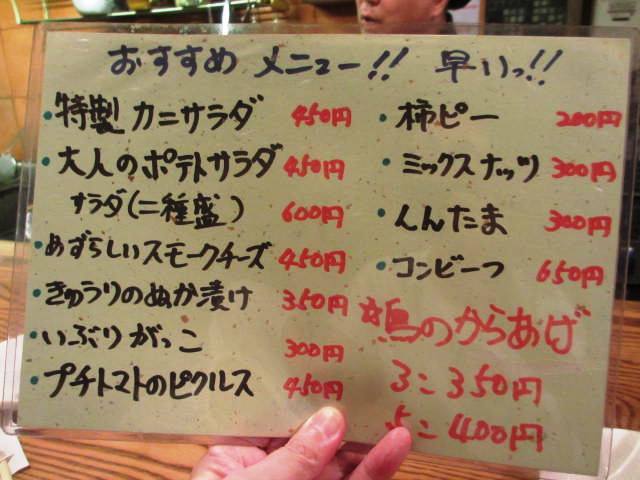 おすすめ メニュー!! 早いっ!!
・特製カニサラダ 450円
・大人のポテトサラダ 450円
サラダ(二種盛) 600円
・めずらしいスモークチーズ 450円
・きゅうりのぬか漬け 350円
・いぶりがっこ 300円
・プチトマトのピクルス 450円
・柿ピー 200円
・ミックスナッツ 300円
・くんたま 300円
・コンビーフ 650円
鶏のからあげ
3コ 350円
5コ 400円